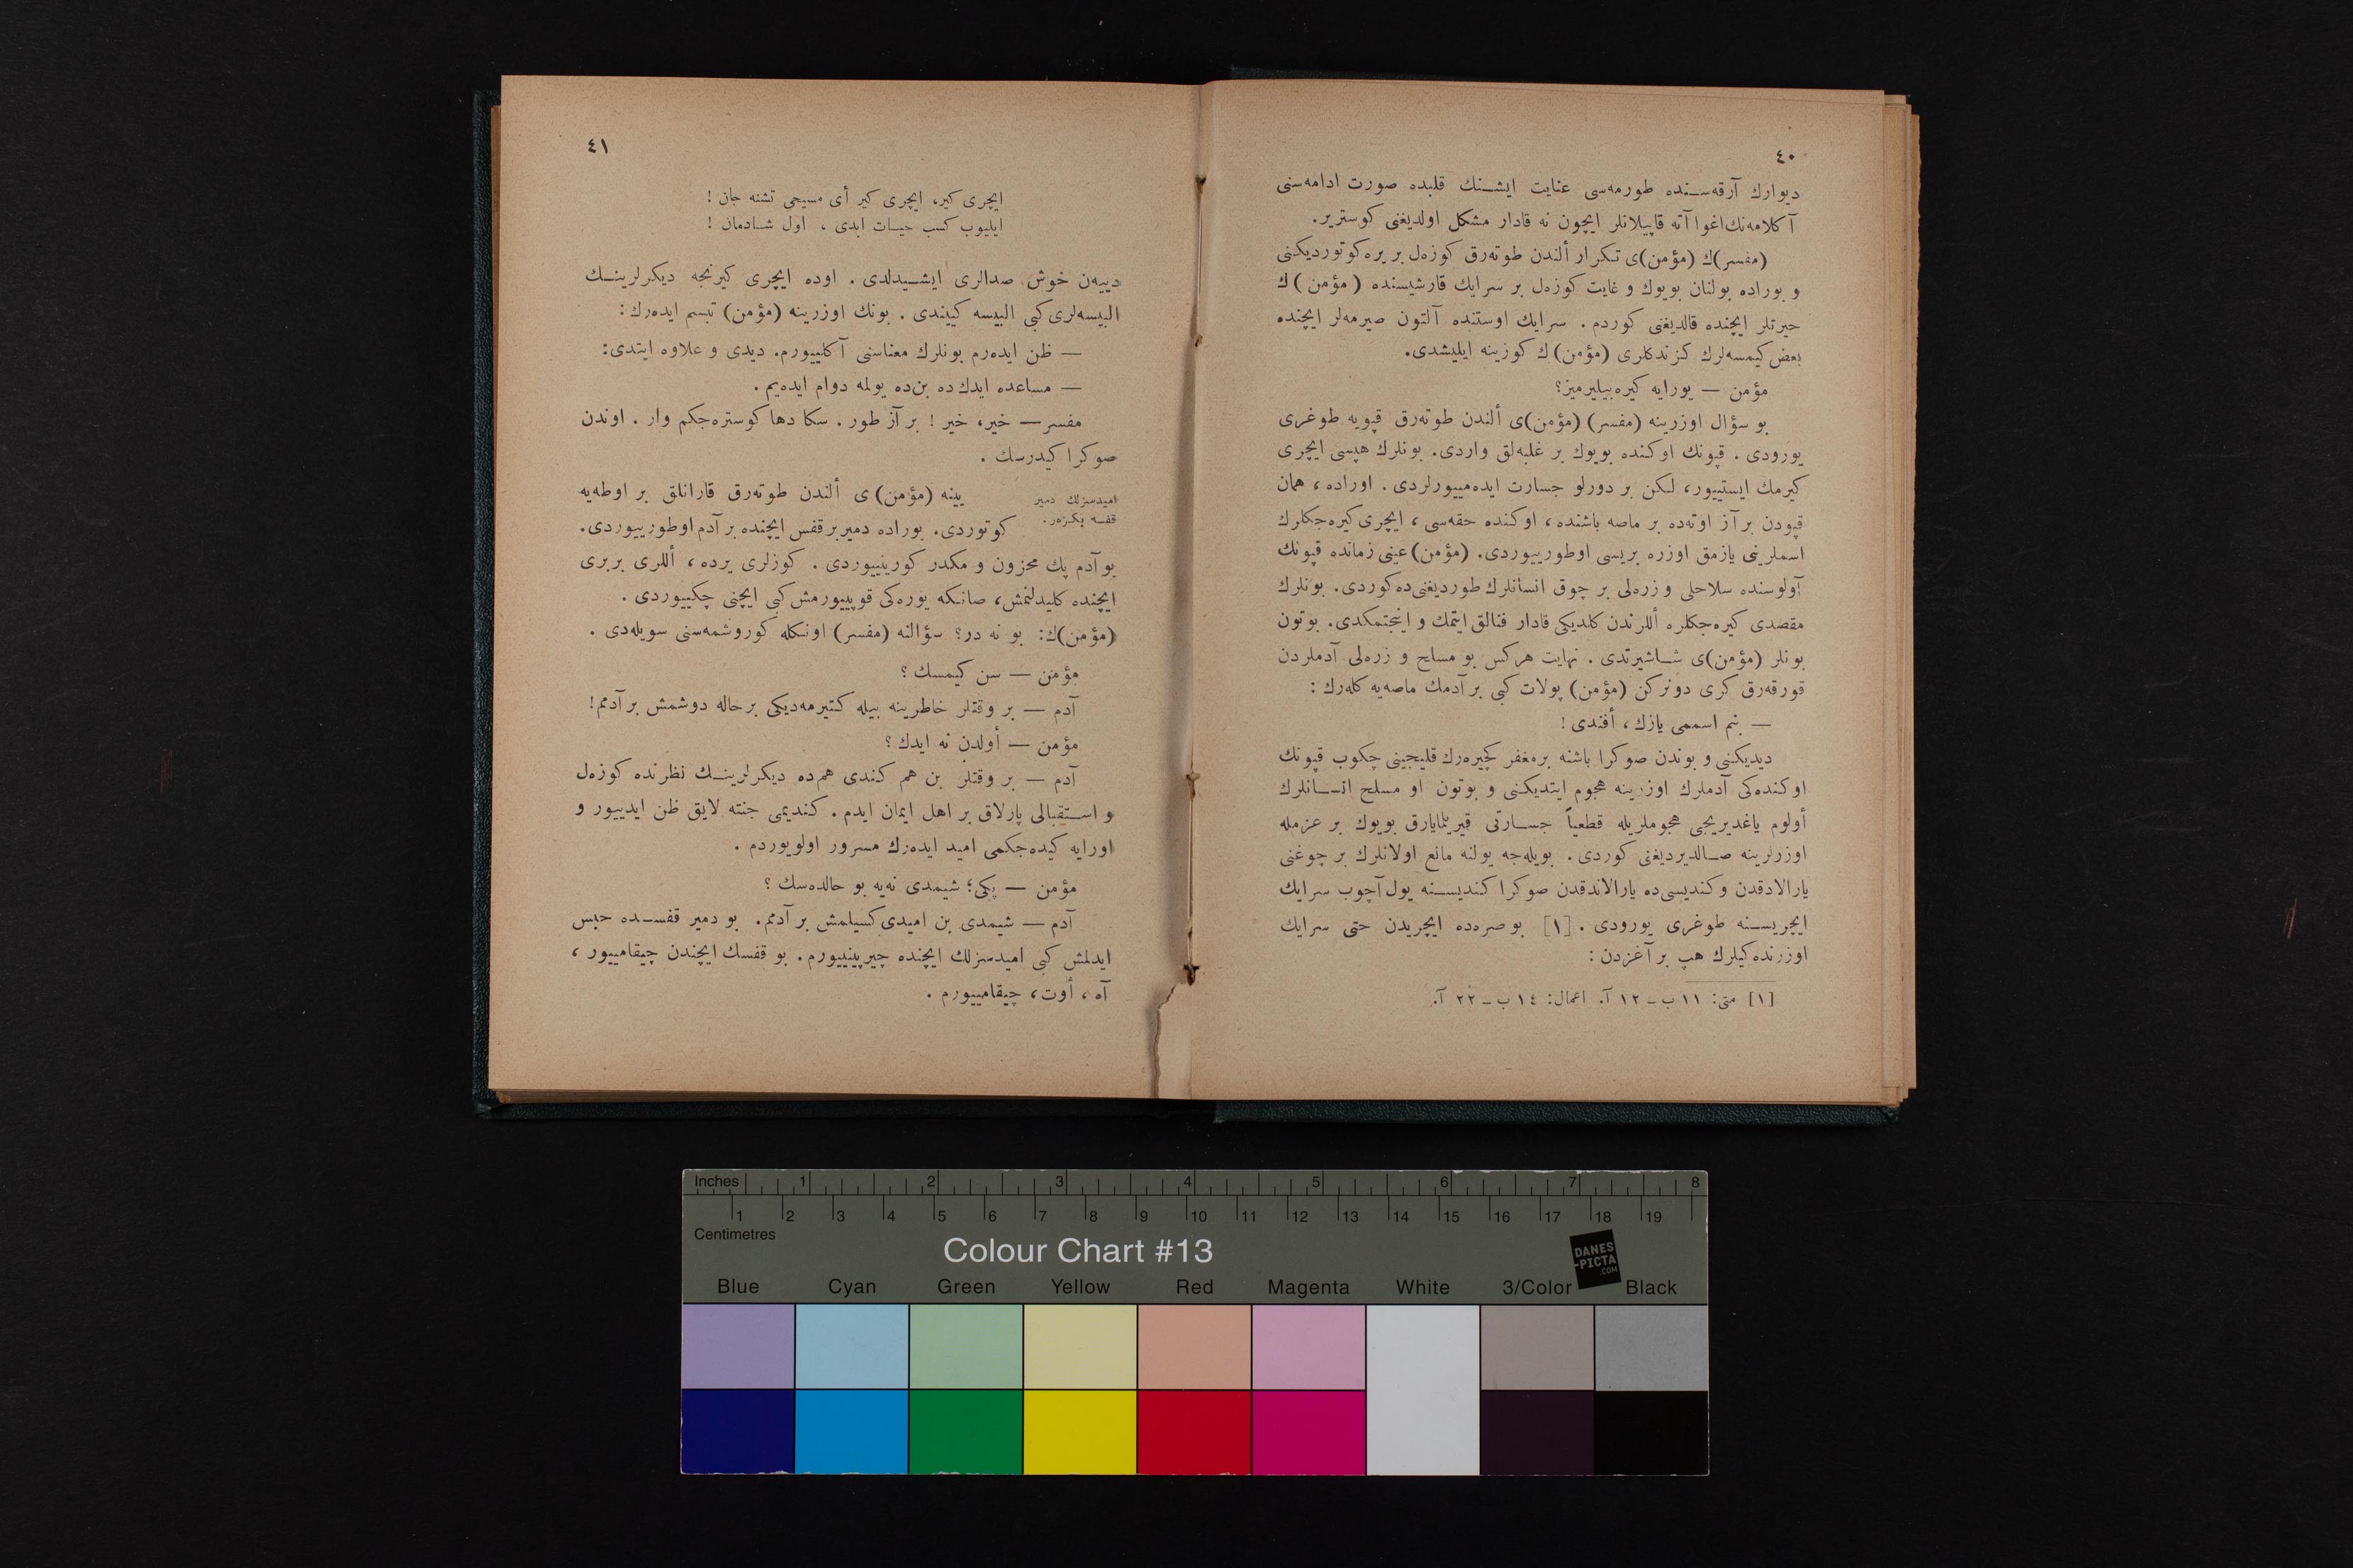 ٤٠
ديوارك آرقه‌سنده طورمه‌سی عنايت ايشنك قلبده صورت ادامه‌سنی
آكلامه‌نك اغوا آته قاپيلانلر ايچون نه قادار مشكل اولديغنی كوسترير.
(مفسر)ك (مؤمن)ی تكرار ألندن طوته‌رق كوزه‌ل بر يره كوتورديكنی
و بوراده بولنان بويوك و غايت كوزه‌ل بر سرايك قارشيسنده (مؤمن)ك
حيرتلر ايچنده قالديغنی كوردم. سرايك اوستنده آلتون صيرمه‌لر ايچنده
بعض كيمسه‌لرك كزندكلری (مؤمن)ك كوزينه ايليشدی.
مؤمن — يورايه كيره‌بيليرميز؟
بو سؤال اوزرينه (مفسر) (مؤمن)ی ألندن طوته‌رق قپويه طوغری
يورودی. قپونك اوكنده بويوك بر غلبه‌لق واردی. بونلرك هپسی ايچری
كيرمك ايستييور، لكن بر دورلو جسارت ايده‌مييورلردی. اوراده، همان
قپودن بر آز اوته‌ده بر ماصه باشنده، اوكنده حقه‌سی، ايچری كيره‌جكلرك
اسملرينی يازمق اوزره بريسی اوطورييوردی. (مؤمن) عينی زمانده قپونك
آولوسنده سلاحلی و زره‌لی بر چوق انسانلرك طورديغنی‌ده كوردی. بونلرك
مقصدی كيره‌جكلره أللرندن كلديكی قادار فنالق ايتمك و اينجتمكدی. بوتون
بونلر (مؤمن)ی شاشيرتدی. نهايت هركس بو مسلح و زره‌لی آدملردن
قورقه‌رق كری دونركن (مؤمن) پولات كبی بر آدمك ماصه‌يه كله‌رك:
— بنم اسممی يازك، أفندی!
ديديكنی و بوندن صوكرا باشنه بر مغفر كچيره‌رك قليجينی چكوب قپونك
اوكنده‌كی آدملرك اوزرينه هجوم ايتديكنی و بوتون او مسلح انسانلرك
أولوم ياغديريجی هجوملريله قطعياً جسارتی قيريلمايارق بويوك بر عزمله
اوزرلرينه صالديرديغنی كوردی. بويله‌جه يولنه مانع اولانلرك بر چوغنی
يارالادقدن و كنديسی‌ده يارالاندقدن صوكرا كنديسنه يول آچوب سرايك
ايچريسنه طوغری يورودی. [١] بو صره‌ده ايچريدن حتی سرايك
اوزرنده‌كيلرك هپ بر آغزدن:
[١] متی: ١١ ب ـ ١٢ آ. اعمال: ١٤ ب ـ ٢٢ آ.
٤١
ايچری كير، ايچری كير أی مسيحی تشنه جان!
ايليوب كسب حيات ابدی، اول شادمان!
دييه‌ن خوش صدالری ايشيدلدی. اوده ايچری كيرنجه ديكرلرينك
البيسه‌لری كبی البيسه كييندی. بونك اوزرينه (مؤمن) تبسم ايده‌رك:
— ظن ايده‌رم بونلرك معناسنی آكلييورم. ديدی و علاوه ايتدی:
— مساعده ايدك ده بن‌ده يولمه دوام ايده‌يم.
مفسر — خير، خير! بر آز طور. سكا دها كوستره‌جكم وار. اوندن
صوكرا كيدرسك.
اميدسزلك دمير
قفسه بكزه‌ر.
يينه (مؤمن)ی ألندن طوته‌رق قارانلق بر اوطه‌يه
كوتوردی. بوراده دمير بر قفس ايچنده بر آدم اوطورييوردی.
بو آدم پك محزون و مكدر كورينييوردی. كوزلری يرده، أللری بربری
ايچنده كليدلنمش، صانكه يوره‌كی قوپييورمش كبی ايچنی چكييوردی.
(مؤمن)ك: بو نه در؟ سؤالنه (مفسر) اونكله كوروشمه‌سنی سويله‌دی.
مؤمن — سن كيمسك؟
آدم — بر وقتلر خاطرينه بيله كتيرمه‌ديكی بر حاله دوشمش بر آدمم!
مؤمن — أولدن نه ايدك؟
آدم — بر وقتلر بن هم كندی هم‌ده ديكرلرينك نظرنده كوزه‌ل
و استقبالی پارلاق بر اهل ايمان ايدم. كنديمی جنته لايق ظن ايدييور و
اورايه كيده‌جكمی اميد ايده‌رك مسرور اولويوردم.
مؤمن — پكی؛ شيمدی نه‌يه بو حالده‌سك؟
آدم — شيمدی بن اميدی كسيلمش بر آدمم. بو دمير قفسده حبس
ايدلمش كبی اميدسزلك ايچنده چيرپينييورم. بو قفسك ايچندن چيقامييور،
آه، أوت، چيقامييورم.
Inches 1 2 3 4 5 6 7 8
1 2 3 4 5 6 7 8 9 10 11 12 13 14 15 16 17 18 19
Centimetres
Colour Chart #13
DANES
-PICTA
.COM
Blue Cyan Green Yellow Red Magenta White 3/Color Black